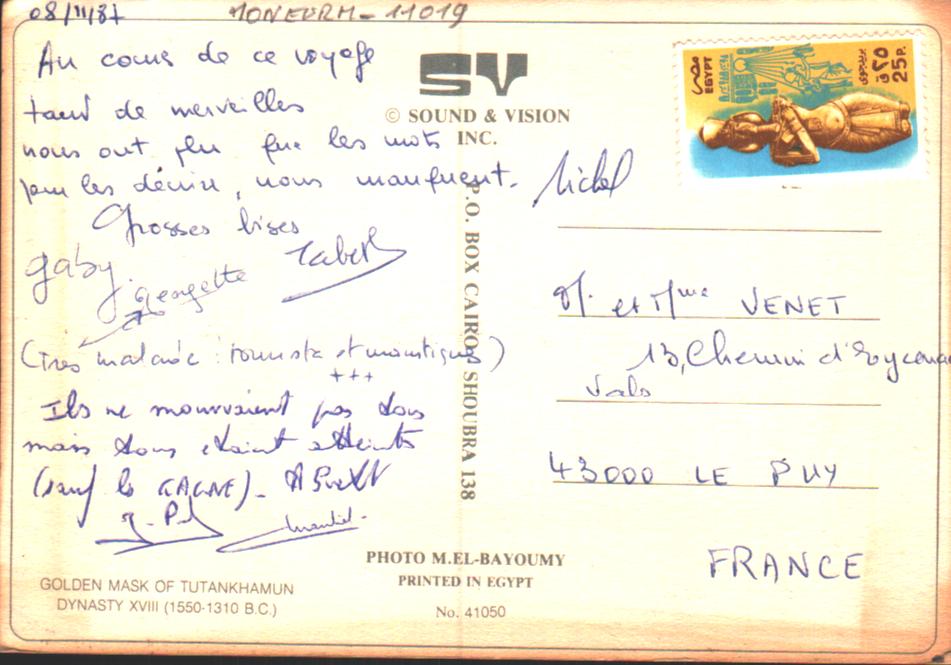 08/11/87
Au cours de ce voyage
tant de merveilles
nous ont plu que les mots
pour les décrire, nous manquent.
Grosses bises
gaby.
georgette
Michel
(Très malade : tourista et moustiques)
+++
Ils ne mouraient pas tous
mais tous étaient atteints
(sauf les GAGNE)-
SV
© SOUND & VISION
INC.
P.O. BOX CAIRO SHOUBRA 138
مصر
EGYPT
٢٥
25 P.
M. et Mme VENET
13, Chemin
Vals
43000 LE PUY
FRANCE
PHOTO M.EL-BAYOUMY
PRINTED IN EGYPT
No. 41050
GOLDEN MASK OF TUTANKHAMUN
DYNASTY XVIII (1550-1310 B.C.)